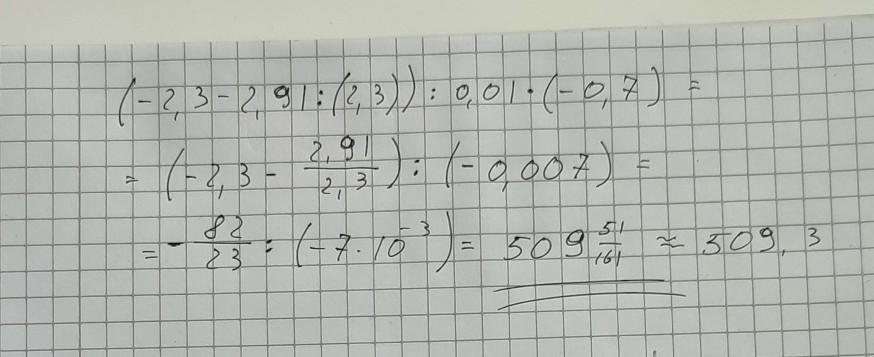 (-2,3-2,91:(2,3)):0,01·(-0,7)=
=(-2,3-\frac{2,91}{2,3}):(-0,007)=
=-\frac{82}{23}:(-7·10^{-3})=509\frac{51}{161}≈509,3